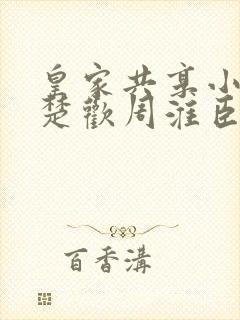 皇家共享小
楚歡周淮臣
百香溝